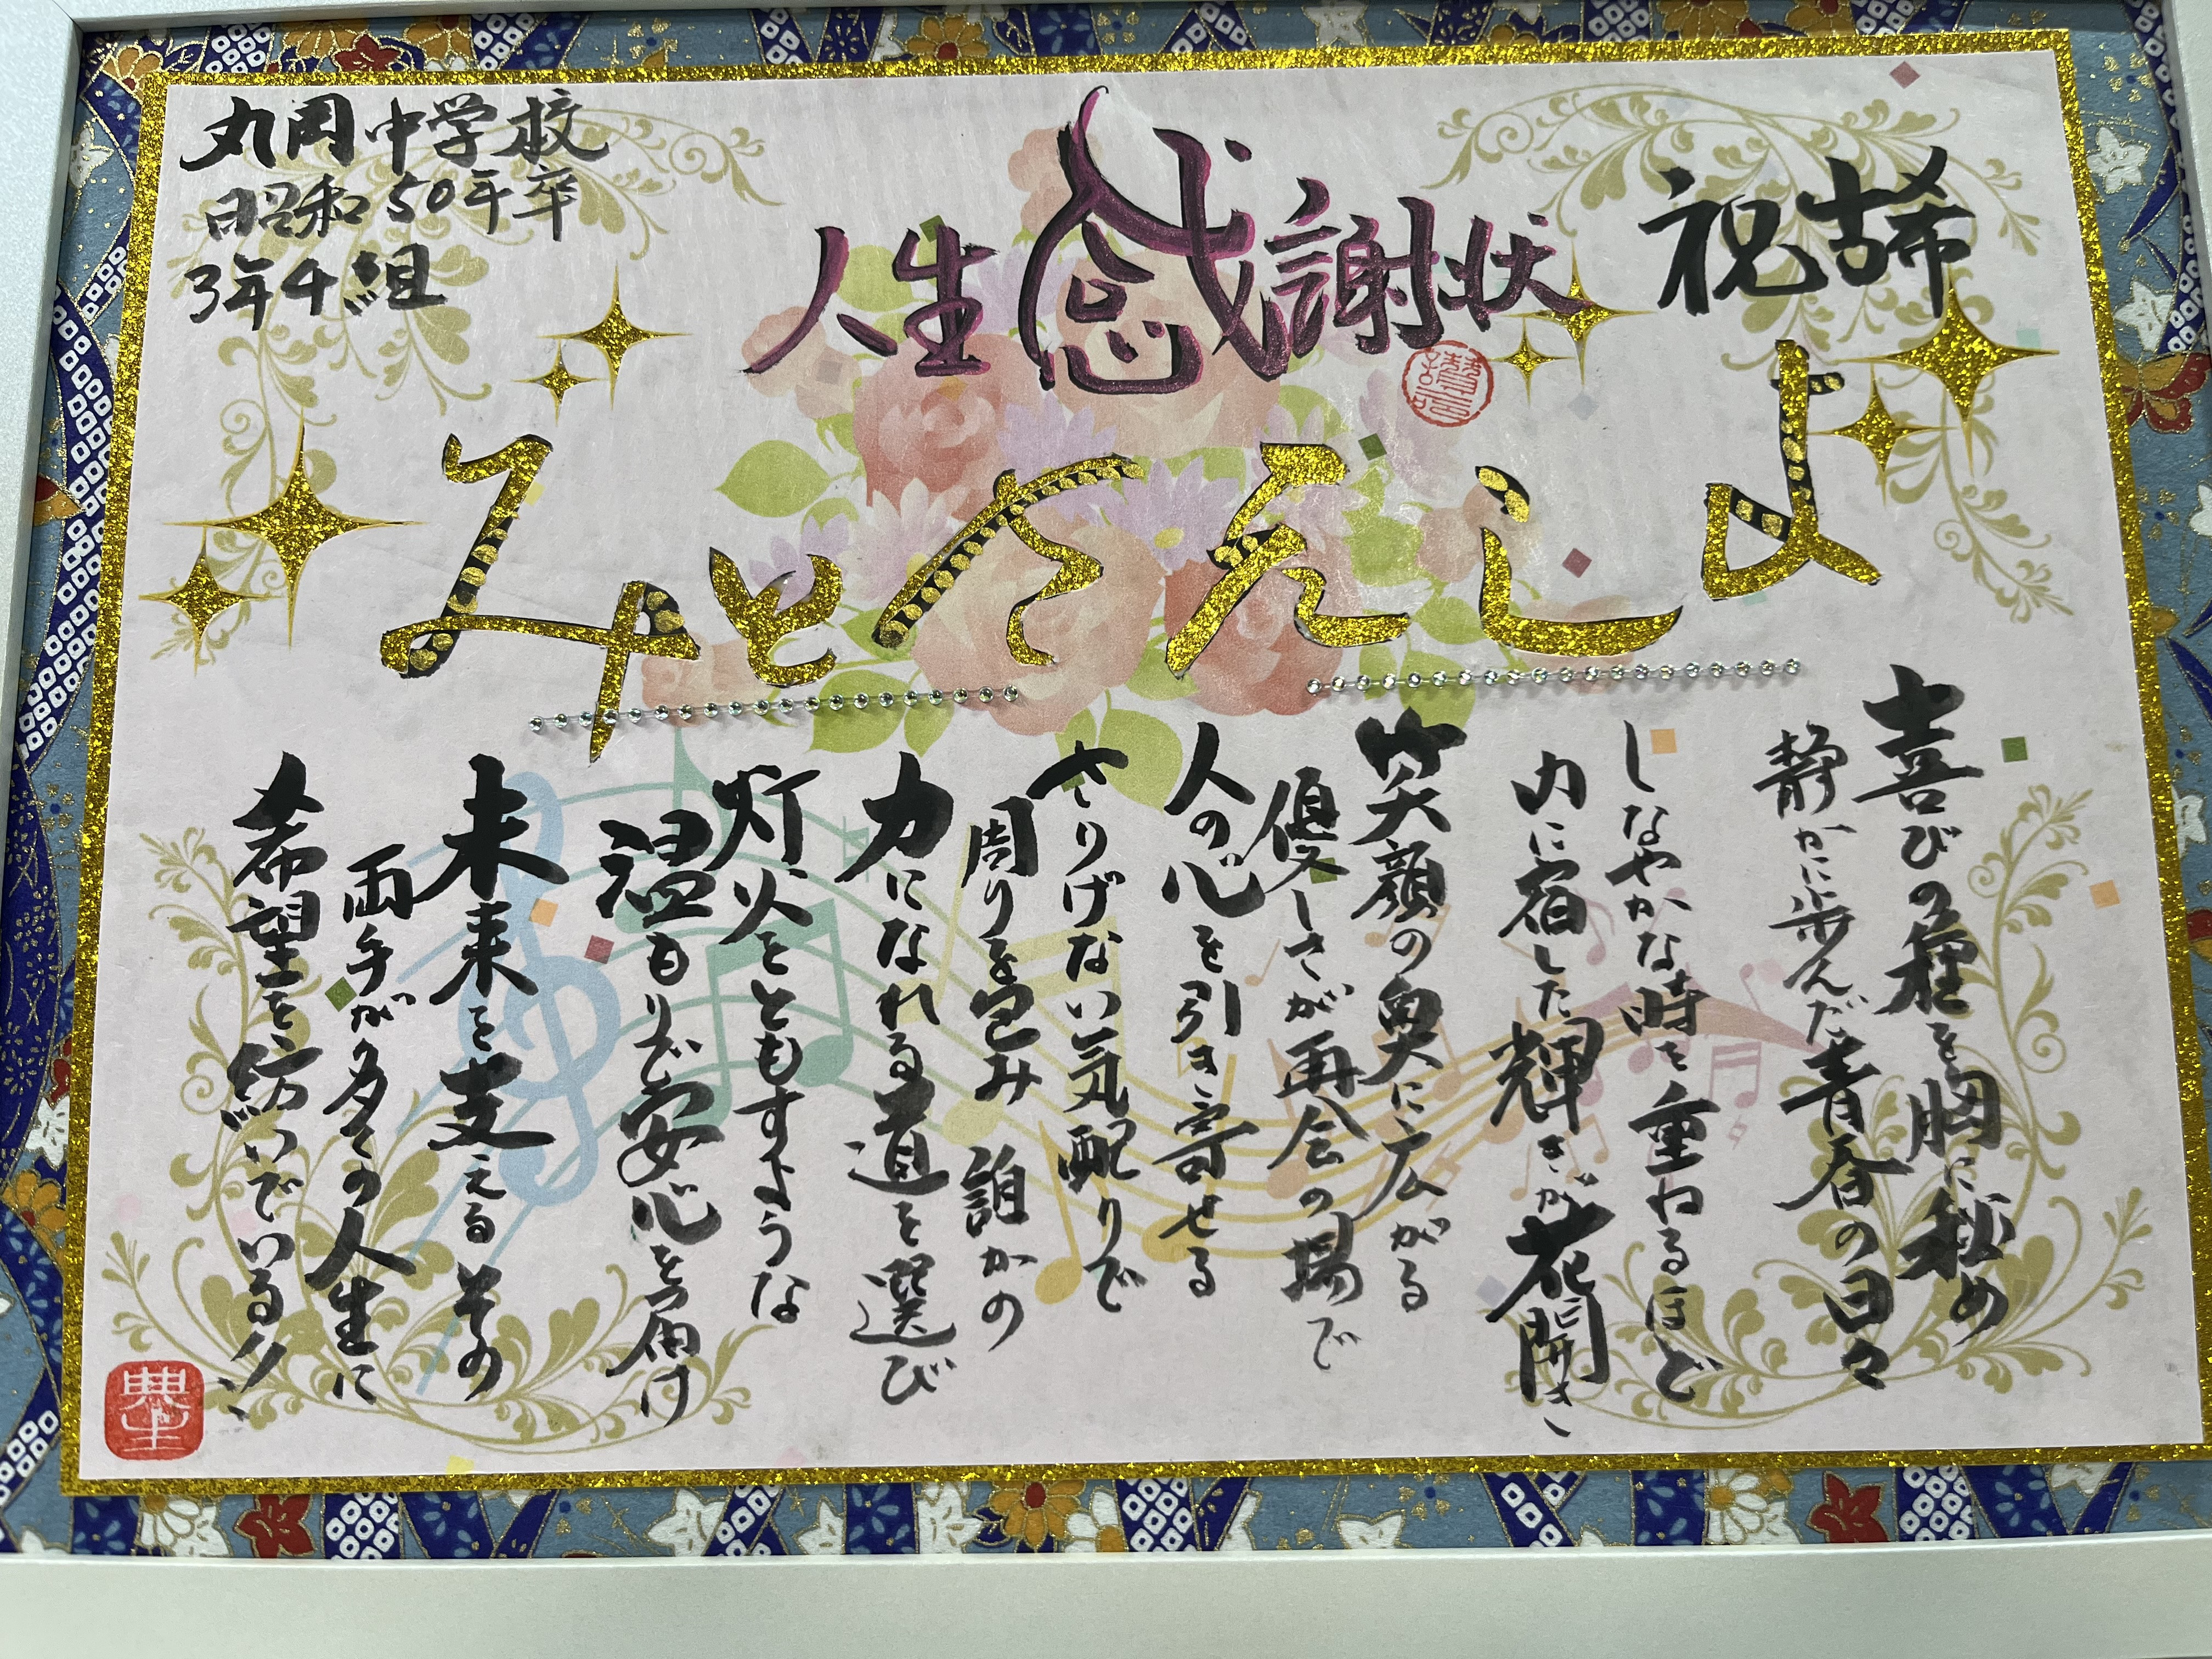 祝古希
人生感謝状
丸岡中学校
昭和50年卒
3年4組
よしえさとみ
喜びの種を胸に秘め
静かに歩んだ青春の日々
しなやかな時を重ねるほど
内に宿した輝きが花開き
笑顔の奥に広がる
優しさが再会の場で
人の心を引き寄せる
さりげない気配りで
周りを包み 誰かの
力になれる道を選び
灯火をともすような
温もりで安心を届け
未来を支えるその
両手が多くの人生に
希望を紡いでいる